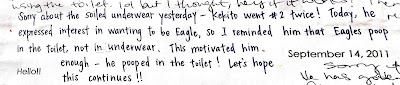 using the toilet. lol but I thought, hey if it works! Then
Sorry about the soiled underwear yesterday - Kekito went #2 twice! Today, he
expressed interest in wanting to be Eagle, so I reminded him that Eagles poop
in the Toilet, not in underwear. This motivated him
enough - he pooped in the toilet! Let's hope
this continues!!
Hello!!
September 14, 2011
Sorry
He has